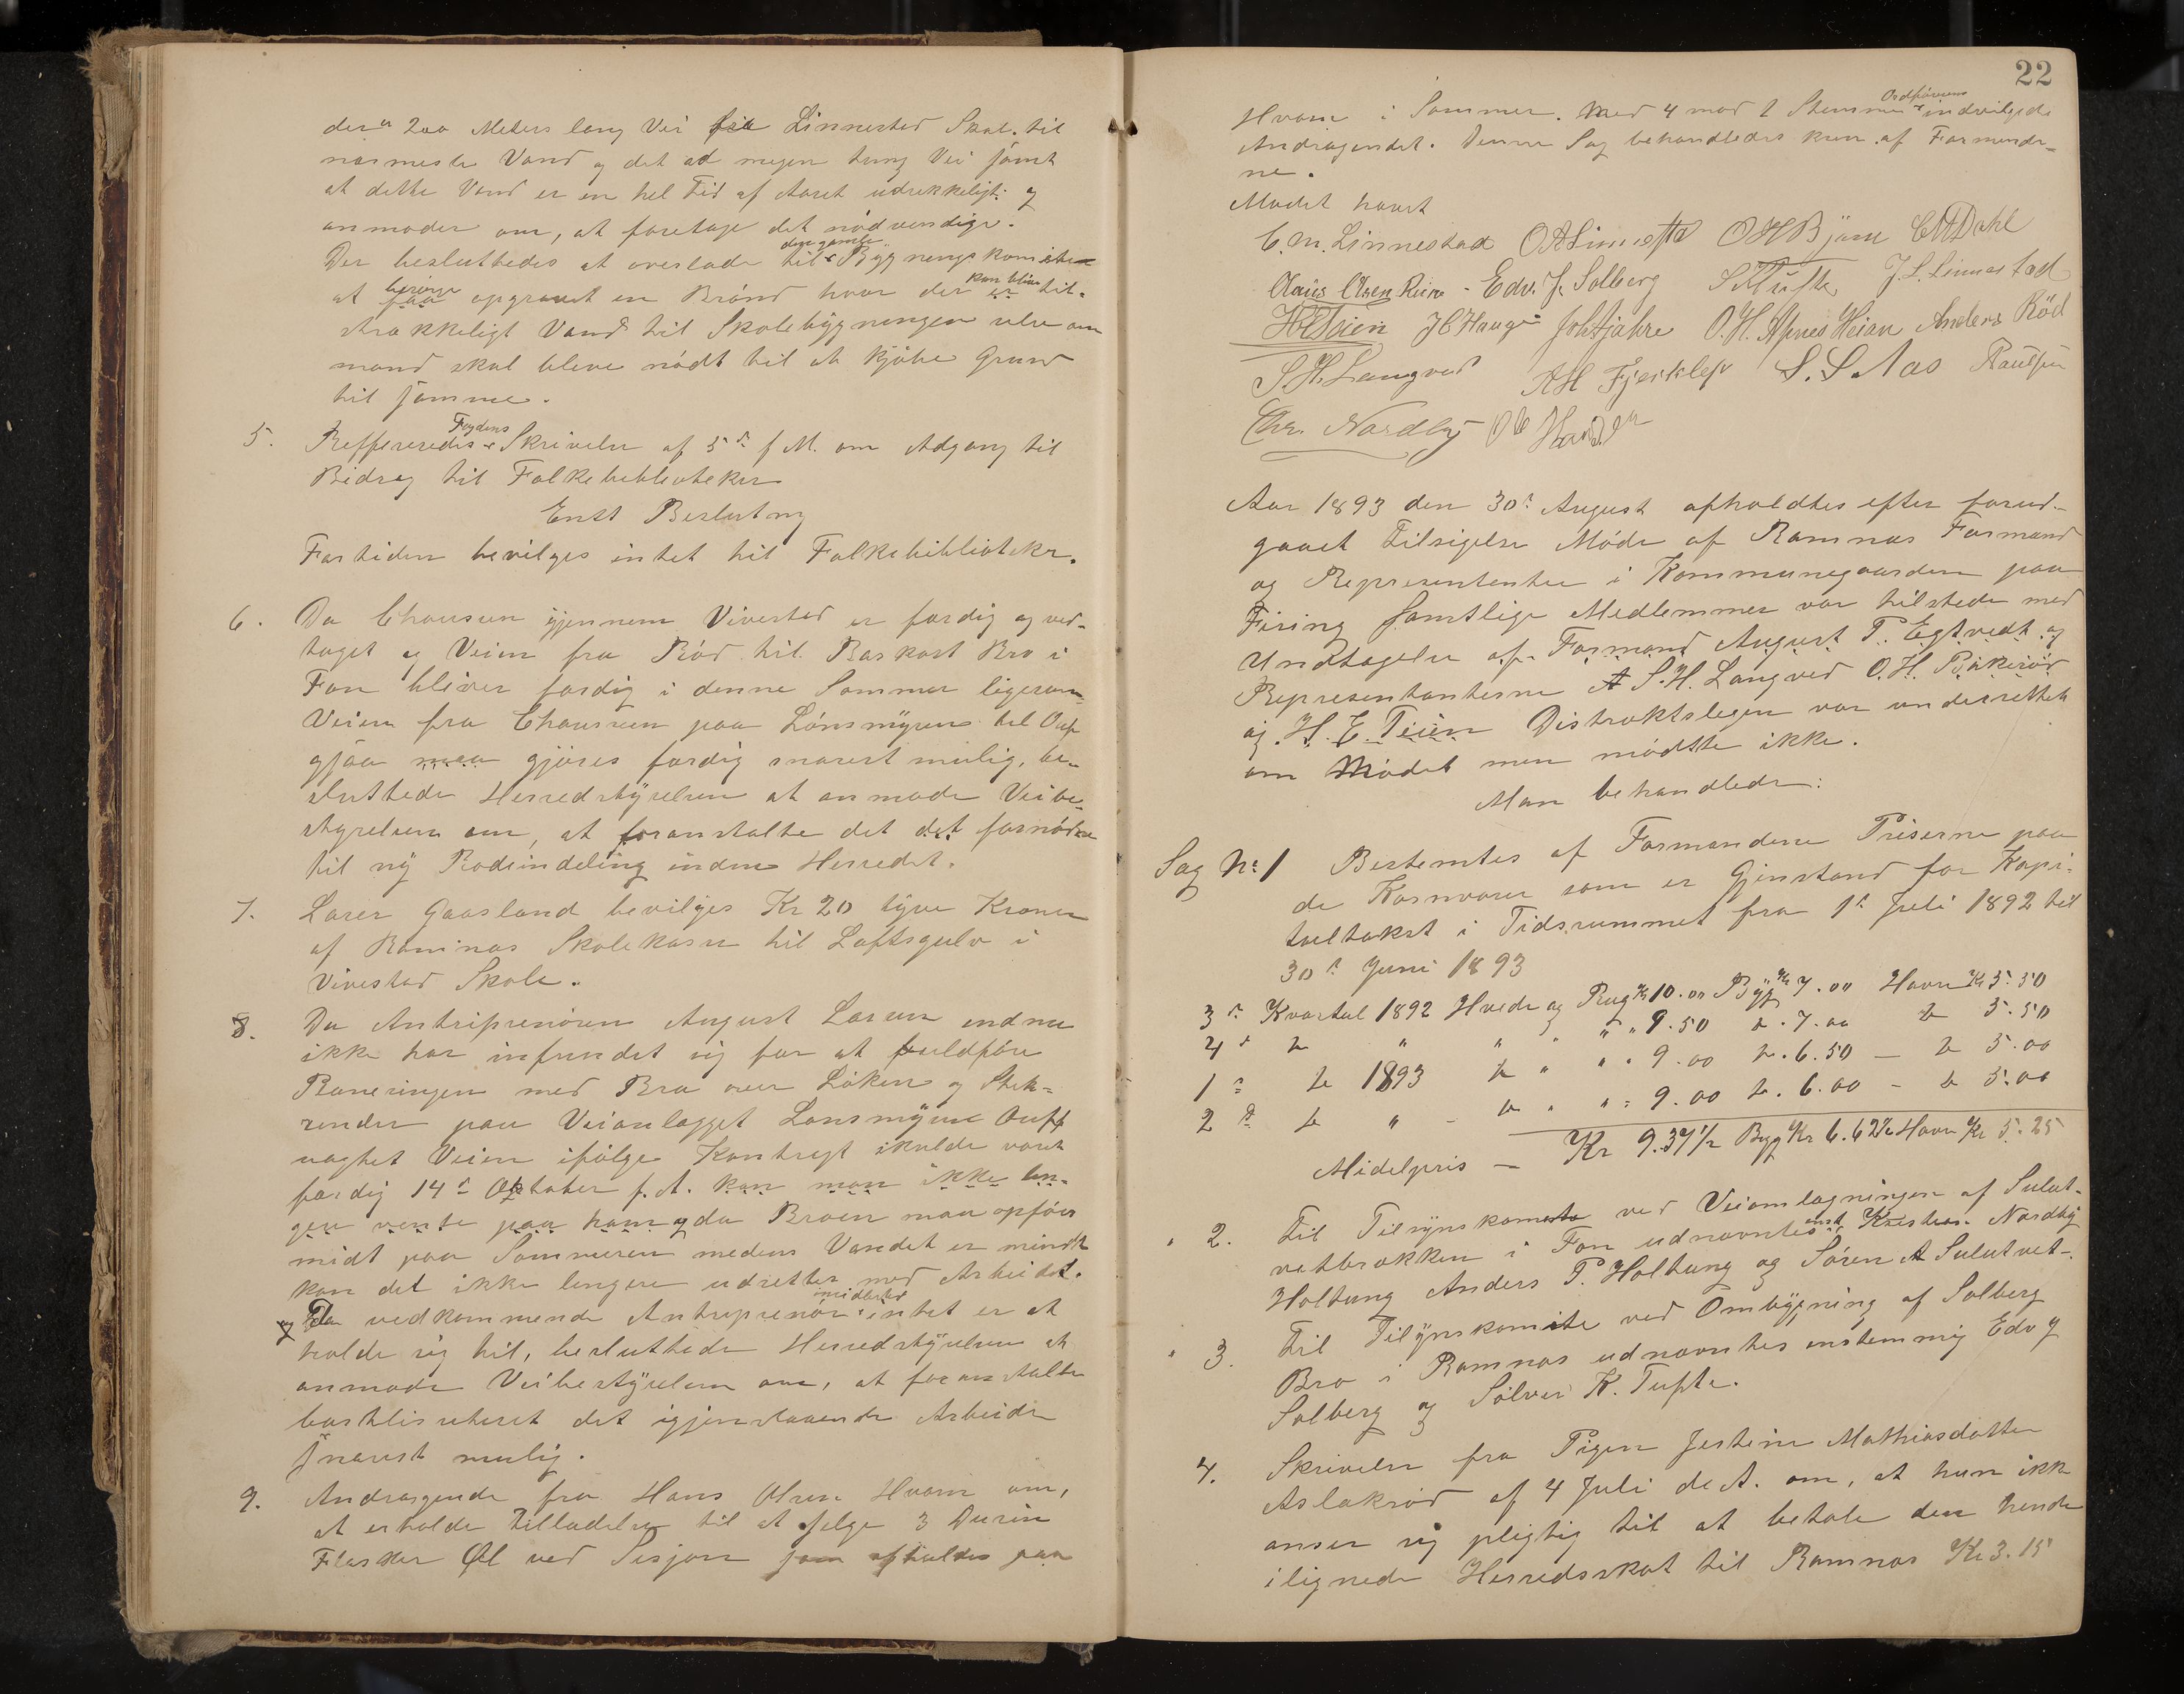 der er 200 Meters lang Vei fra Linnestad Skole til
nærmeste Vand og det ad megen tung Vei samt
at dette Vand er en hel Tid af Aaret udrekkeligt og
anmoder om, at foretage det nødvendige.
Der besluttedes at overlade til den gamle Bygningskomite
at besørge opgravet en Brønd hvor der kan blive til-
strækkeligt Vand til Skolebygningen selv om
mand skal bleve nødt til at kjøbe Grund
til samme.
5. Reffereredes Fogdens Skrivelse af 5te f M. om Adgang til
Bidrag til Folkebibliotheker
Enst Beslutning
Fortiden bevilges intet til Folkebibliotekr.
6. Da Chauseen gjennem Vivestad er færdig og ved-
taget og Veien fra Rød til Baskast Bro i
Fon bliver færdig i denne Sommer ligesom
Veien fra Chauseen paa Lønsmyren til Oup
gjaa maa gjøres færdig snarest mulig, be-
sluttede Herredstyrelsen at anmode Veibe-
styrelsen om, at foranstalte det det fornødne
til ny Rodeindeling inden Herredet.
7. Lærer Gaasland bevilges Kr 20 tyve Kroner
af Ramnæs Skolekasse til Loftsgulv i
Vivestad Skole.
8. Da Antreprenøren August Larsen endnu
ikke har infundet sig for at fuldføre
Planeringen med Bro over Løken og Stik-
render paa Veianlægget Lønsmyren Oupf
uagtet Veien ifølge Kontragt skulde være
færdig 14de Oktober f. A. kan man ikke læn-
ger vente paa ham og da Broen maa opføres
midt paa Sommeren medens Vandet er mindst
kan det ikke lengere udsettes med Arbeidet.
og Da vedkommende Antreprenør imidlertid intet er at
holde sig til, besluttede Herredstyrelsen at
anmode Veibestyrelsen om, at foranstalte
bortlisiteret det igjenstaaende Arbeide
snarest mulig.
9. Andragende fra Hans Olsen Hvam om,
at erholde Tilladelse til at selge 3 Dusin
Flasker Øl ved Sesjon som afholdes paa
22
Hvam i Sommer. Med 4 mod 1 Stemme Ordførerens indvilgede
Andragendet. Denne Sag behandledes kun af Formænde-
ne.
Mødet hævet
C. M. Linnestad O A Linnestad O H Bjäre C M Dahl
Claus Olsen Reine - Edv. J. Solberg S K Tufte J. L. Linnestad
H E Teien J C Hauge Joh Hjahre O. H. Apnes Heian Anders Röd
S. H. Langved A H Fjerklep S. S. Aas Paulsen
Chr. Nordby
Aar 1893 den 30te August afholdtes efter forud-
gaaet Tilsigelse Møde af Ramnæs Formænd
og Representenster i Kommunegaarden paa
Firing Samtlige Medlemmer var tilstede med
Undtagelse af Formand August P. Egtvedt og
Representanterne S. H. Langved O. H. Bjäkeröd
og H. E. Teien Distraktslegen var underrettet
om Mødet men mødtte ikke.
Man behandlede:
Sag No 1 Bestemtes af Formændene Priserne paa
de Kornvarer som er Gjenstand for Kapi-
teltakst i Tidsrummet fra 1te Juli 1892 til
30te Juni 1893
3de Kvartal 1892 Hvede og Rug Kr 10.00 Byg Kr 7.00 Havre Kr 5.50
4de do " " " " " 9.50 do. 7.00 do 5.50
1ste do 1893 do " " " 9.00 do. 6.50 — do 5.00
2det do " - do " " " 9.00 do. 6.00 - do 5.00
Midelpris — Kr 9.37 1/2 Byg Kr 6.62 1/2 Havre Kr 5.25
" 2. Til Tilsynskomite ved Veiomlægningen af Sulut-
vetbrækken i Fon udnævntes enst Kristian Nordby
Holtung Anders P. Holtung og Søren A Sulutvet.
" 3. Til Tilsynskomite ved Ombygning af Solberg
Bro i Ramnæs udnævntes enstemmig Edv J
Solberg og Sølver K. Tufte.
4. Skrivelse fra Pigen Jestine Mathiasdatter
Aslakrød af 4 Juli d. A. om, at hun ikke
anser sig pligtig til at betale den hende
ilignede Herredsskat til Ramnæs Kr 3.15